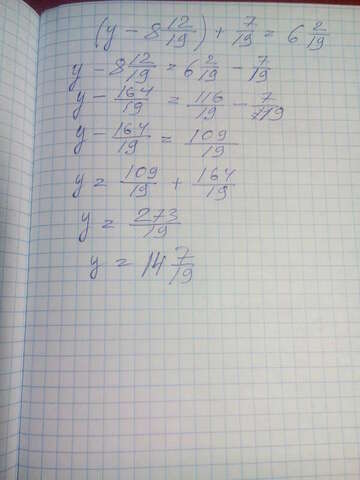 (y - 8 12/19) + 7/19 = 6 2/19
y - 8 12/19 = 6 2/19 - 7/19
y - 164/19 = 116/19 - 7/19
y - 164/19 = 109/19
y = 109/19 + 164/19
y = 273/19
y = 14 7/19